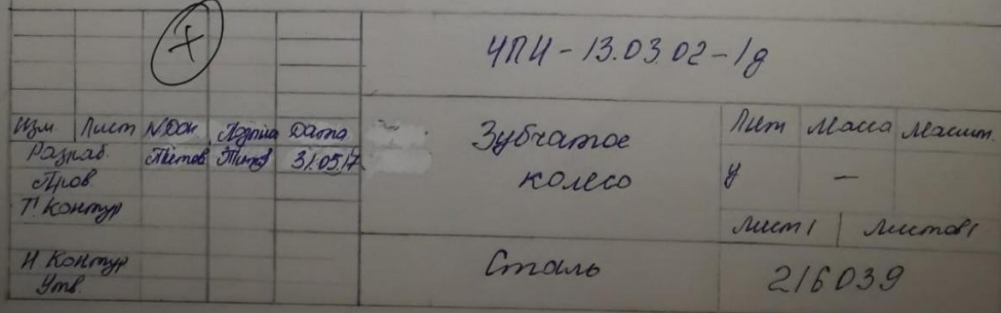 ЧПИ-13.03.02-1д
Изм Лист N.Док Подпись Дата
Разраб. Титов Титов 31.05.17
Пров
Т. Контур
Н Контур
Утв.
Зубчатое
колесо
Лит Масса Масшт.
у —
Лист 1 Листов 1
Сталь
216039